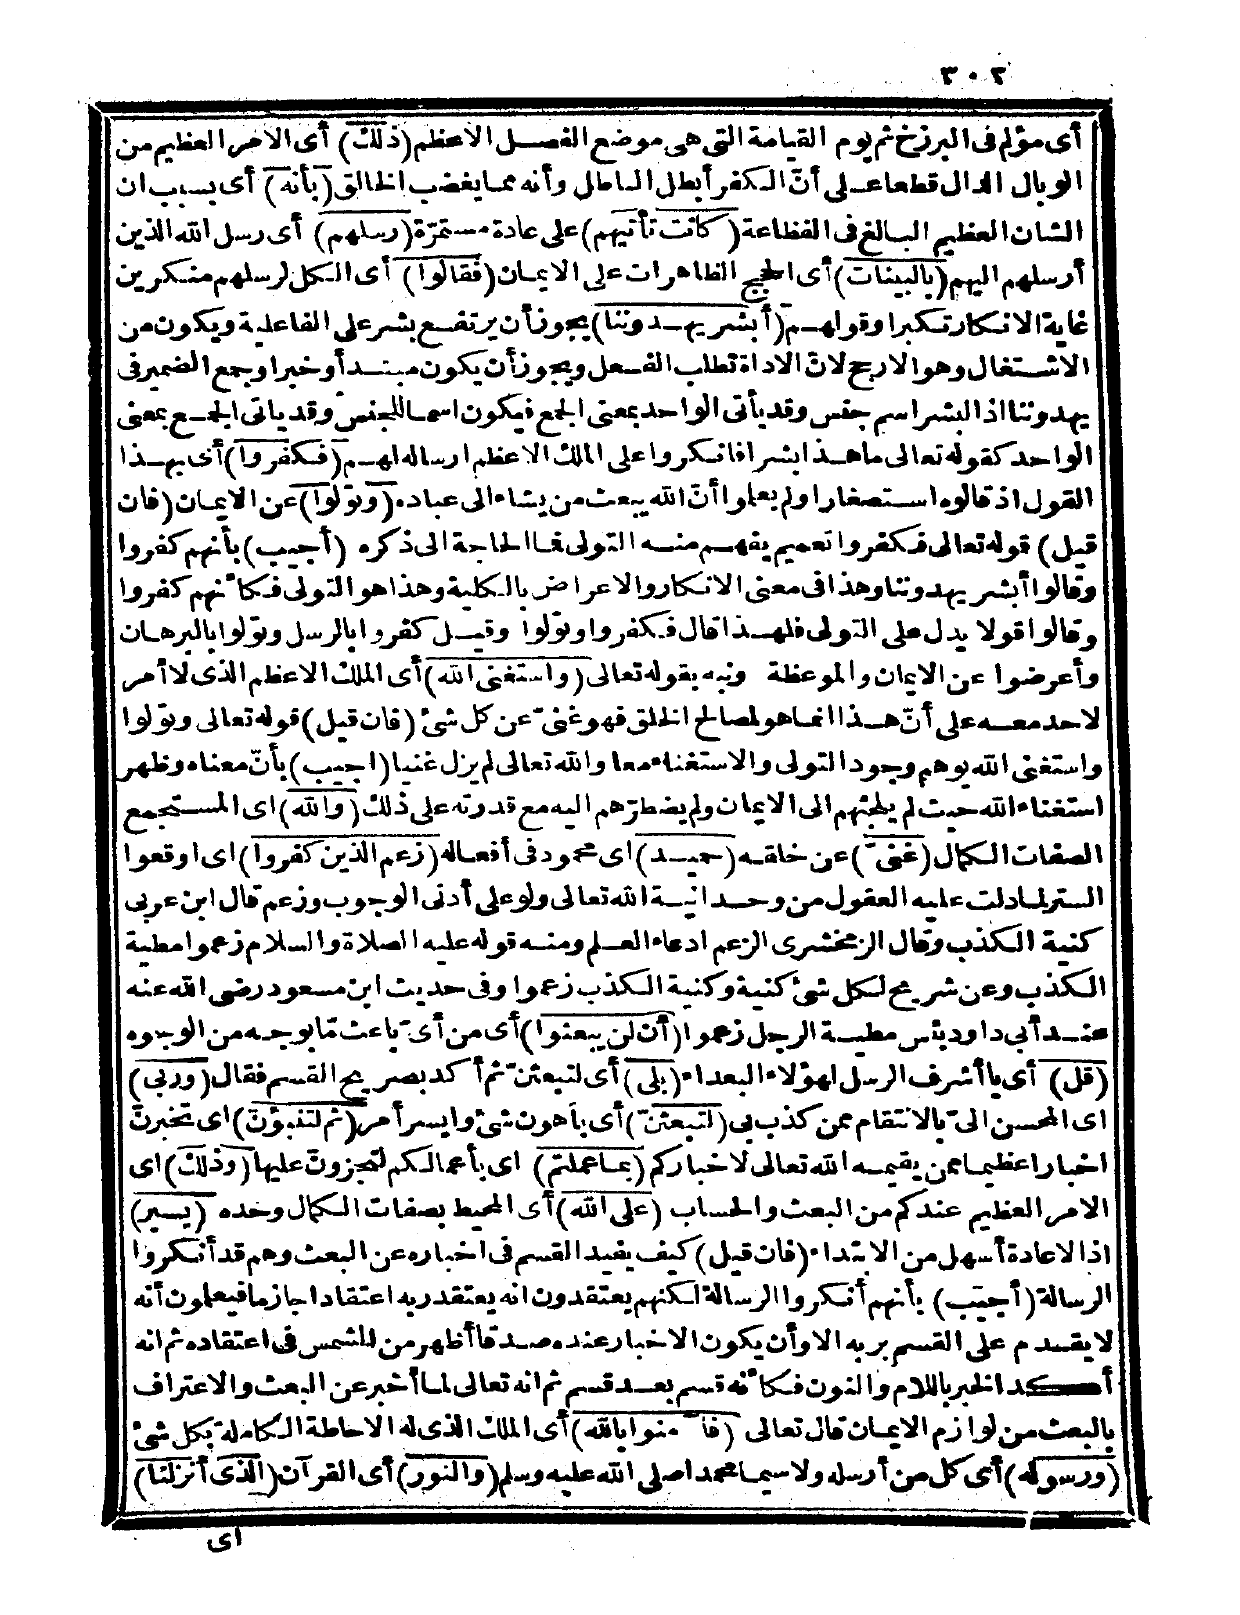 ٣٠٢
أى مؤلم فى البرزخ ثم يوم القيامة التى هى موضع الفصل الاعظم (ذلك) أى الامر العظيم من
الوبال الدال قطعا على أنّ الكفر أبطل الباطل وأنه مما يغضب الخالق (بأنه) أى بسبب ان
الشان العظيم البالغ فى الفظاعة (كانت تأتيهم) على عادة مستمرّة (رسلهم) أى رسل الله الذين
أرسلهم اليهم (بالبينات) أى الحجج الظاهرات على الايمان (فقالوا) أى الكل لرسلهم منكرين
غاية الانكار تكبرا وقولهم (أبشر يهدوننا) يجوز أن يرتفع بشر على الفاعلية ويكون من
الاشتغال وهو الارجح لانّ الاداة تطلب الفعل ويجوز أن يكون مبتدأ وخبرا وجمع الضمير فى
يهدوننا اذ البشر اسم جنس وقد يأتى الواحد بمعنى الجمع فيكون اسما للجنس وقد ياتى الجمع بمعنى
الواحد كقوله تعالى ما هذا بشرا فانكروا على الملك الاعظم ارساله لهم (فكفروا) أى بهذا
القول اذ قالوه استصغارا ولم يعلموا أنّ الله يبعث من يشاء الى عباده (وتولوا) عن الايمان (فان
قيل) قوله تعالى فكفروا تعميم يفهم منه التولى فما الحاجة الى ذكره (أجيب) بأنهم كفروا
وقالوا أبشر يهدوننا وهذا فى معنى الانكار والاعراض بالكلية وهذا هو التولى فكأنهم كفروا
وقالوا قولا يدل على التولى فلهذا قال فكفروا وتولوا وقيل كفروا بالرسل وتولوا بالبرهان
وأعرضوا عن الايمان والموعظة ونبه بقوله تعالى (واستغنى الله) أى الملك الاعظم الذى لا أمر
لاحد معه على أنّ هذا انما هو لمصالح الخلق فهو غنىّ عن كل شئ (فان قيل) قوله تعالى وتولوا
واستغنى الله يوهم وجود التولى والاستغناء معا والله تعالى لم يزل غنيا (اجيب) بأنّ معناه وظهر
استغناء الله حيث لم يلجئهم الى الايمان ولم يضطرّهم اليه مع قدرته على ذلك (والله) اى المستجمع
الصفات الكمال (غنىّ) عن خلقه (حميد) اى محمود فى أفعاله (زعم الذين كفروا) اى اوقعوا
الستر لما دلت عليه العقول من وحدانية الله تعالى ولو على أدنى الوجوب وزعم قال ابن عربى
كنية الكذب وقال الزمخشرى الزعم ادعاء العلم ومنه قوله عليه الصلاة والسلام زعموا مطية
الكذب وعن شريح لكل شئ كنية وكنية الكذب زعموا وفى حديث ابن مسعود رضى الله عنه
عند أبى داود بئس مطية الرجل زعموا (أن لن يبعثوا) أى من أىّ باعث مّا بوجه من الوجوه
(قل) أى يا أشرف الرسل لهؤلاء البعداء (بلى) أى لتبعثنّ ثم أكد بصريح القسم فقال (وربى)
اى المحسن الىّ بالانتقام ممن كذب بى (لتبعثنّ) أى بأهون شئ وايسر أمر (ثم لتنبؤنّ) اى تخبرنّ
اخبارا عظيما ممن يقيمه الله تعالى لاخباركم (بما عملتم) اى بأعمالكم لتجزونّ عليها (وذلك) اى
الامر العظيم عندكم من البعث والحساب (على الله) أى المحيط بصفات الكمال وحده (يسير)
اذ الاعادة أسهل من الابتداء (فان قيل) كيف يفيد القسم فى اخباره عن البعث وهم قد أنكروا
الرسالة (أجيب) بأنهم أنكروا الرسالة لكنهم يعتقدون انه يعتقد ربه اعتقادا جازما فيعلمون أنه
لا يقدم على القسم بربه الا وأن يكون الاخبار عنده صدقا أظهر من الشمس فى اعتقاده ثم انه
أكد الخبر باللام والنون فكأنه قسم بعد قسم ثم انه تعالى لما أخبر عن البعث والاعتراف
بالبعث من لوازم الايمان قال تعالى (فآمنوا بالله) أى الملك الذى له الاحاطة الكاملة بكل شئ
(ورسوله) أى كل من أرسله ولا سيما محمدا صلى الله عليه وسلم (والنور) أى القرآن (الذى أنزلنا)
اى